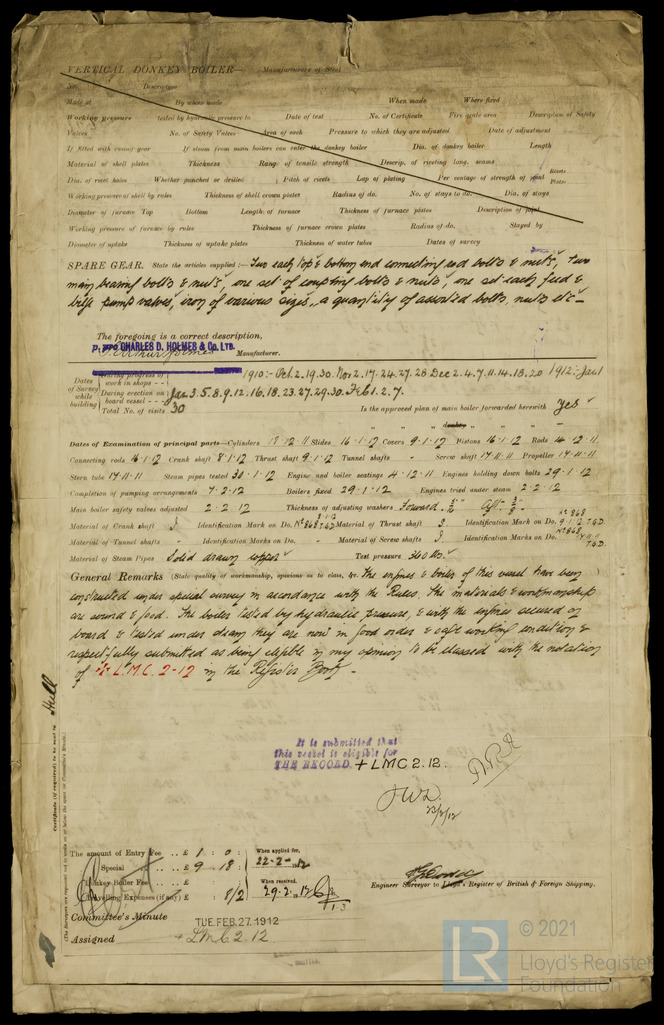 VERTICAL DONKEY BOILER— Manufacturers of Steel
No. Description
Made at By whom made When made Where fixed
Working pressure tested by hydraulic pressure to Date of test No. of Certificate Fire grate area Description of Safety
Valves No. of Safety Valves Area of each Pressure to which they are adjusted Date of adjustment
If fitted with easing gear If steam from main boilers can enter the donkey boiler Dia. of donkey boiler Length
Material of shell plates Thickness Range of tensile strength Descrip. of riveting long. seams
Dia. of rivet holes Whether punched or drilled Pitch of rivets Lap of plating Per centage of strength of joint Rivets Plates
Working pressure of shell by rules Thickness of shell crown plates Radius of do. No. of stays to do. Dia. of stays
Diameter of furnace Top Bottom Length of furnace Thickness of furnace plates Description of joint
Working pressure of furnace by rules Thickness of furnace crown plates Radius of do. Stayed by
Diameter of uptake Thickness of uptake plates Thickness of water tubes Dates of survey
SPARE GEAR. State the articles supplied:— Two each top & bottom end connecting rod bolts & nuts, two
main bearing bolts & nuts, one set of coupling bolts & nuts, one set each feed &
bilge pump valves, iron of various sizes, a quantity of assorted bolts, nuts etc—
The foregoing is a correct description,
p. pro CHARLES D. HOLMES & Co. LTD.
Manufacturer.
Dates of Survey while building
During progress of work in shops -- 1910:- Oct. 2. 19. 30. Nov 2. 17. 24. 27. 28 Dec 2. 4. 7. 11. 14. 18. 20 1912:- Jan 1
During erection on board vessel --- Jan 3. 5. 8. 9. 12. 16. 18. 23. 27. 29. 30. Feb 1. 2. 7.
Total No. of visits 30 Is the approved plan of main boiler forwarded herewith Yes
" " donkey " " "
Dates of Examination of principal parts—Cylinders 12·11 Slides 16·1·12 Covers 9·1·12 Pistons 16·1·12 Rods 14·12·11.
Connecting rods 16·1·12 Crank shaft 8·1·12 Thrust shaft 9·1·12 Tunnel shafts - Screw shaft 17·11·11 Propeller 17·11·11
Stern tube 17·11·11 Steam pipes tested 30·1·12 Engine and boiler seatings 4·12·11 Engines holding down bolts 29·1·12
Completion of pumping arrangements 7·2·12 Boilers fixed 29·1·12 Engines tried under steam 2·2·12
Main boiler safety valves adjusted 2·2·12 Thickness of adjusting washers Forward Aft
Material of Crank shaft S Identification Mark on Do. Material of Thrust shaft S Identification Mark on Do. No 868 9·1·12 T.G.D.
Material of Tunnel shafts - Identification Marks on Do. - Material of Screw shafts S Identification Marks on Do. No 868 T.G.D.
Material of Steam Pipes Solid drawn copper Test pressure 360 lbs.
General Remarks (State quality of workmanship, opinions as to class, &c. The engines & boiler of this vessel have been
constructed under special survey in accordance with the Rules. The materials & workmanship
are sound & good. The boiler tested by hydraulic pressure, & with the engines secured on
board & tested under steam they are now in good order & safe working condition &
respectfully submitted as being eligible in my opinion to be classed with the notation
of + L.M.C. 2-12 in the Register Book.-
Certificate (if required) to be sent to Hull
It is submitted that
this vessel is eligible for
THE RECORD. + LMC 2.12.
The amount of Entry Fee .. £ 1 : 0 : When applied for,
Special .. £ 9 : 18 : 22-2-1912
Donkey Boiler Fee .. £ : : When received,
Travelling Expenses (if any) £ : 8/2 29.2.1912
Engineer Surveyor to Lloyd's Register of British & Foreign Shipping.
Committee's Minute TUE. FEB. 27. 1912
Assigned + LMC 2.12
© 2021
LR Lloyd's Register
Foundation